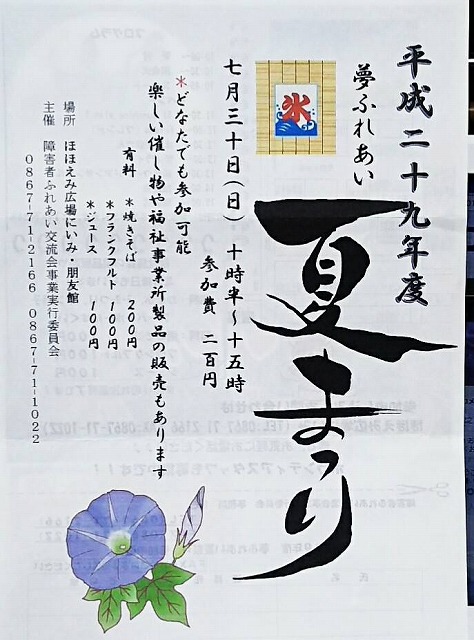 平成二十九年度
夢ふれあい
夏まつり
氷
七月三十日(日) 十時半~十五時
参加費 二百円
*どなたでも参加可能
楽しい催し物や福祉事業所製品の販売もあります
有料 *焼きそば 200円
*フランクフルト 100円
*ジュース 100円
場所 ほほえみ広場にいみ・朋友館
主催 障害者ふれあい交流会事業実行委員会
0867-71-2166 0867-71-1022